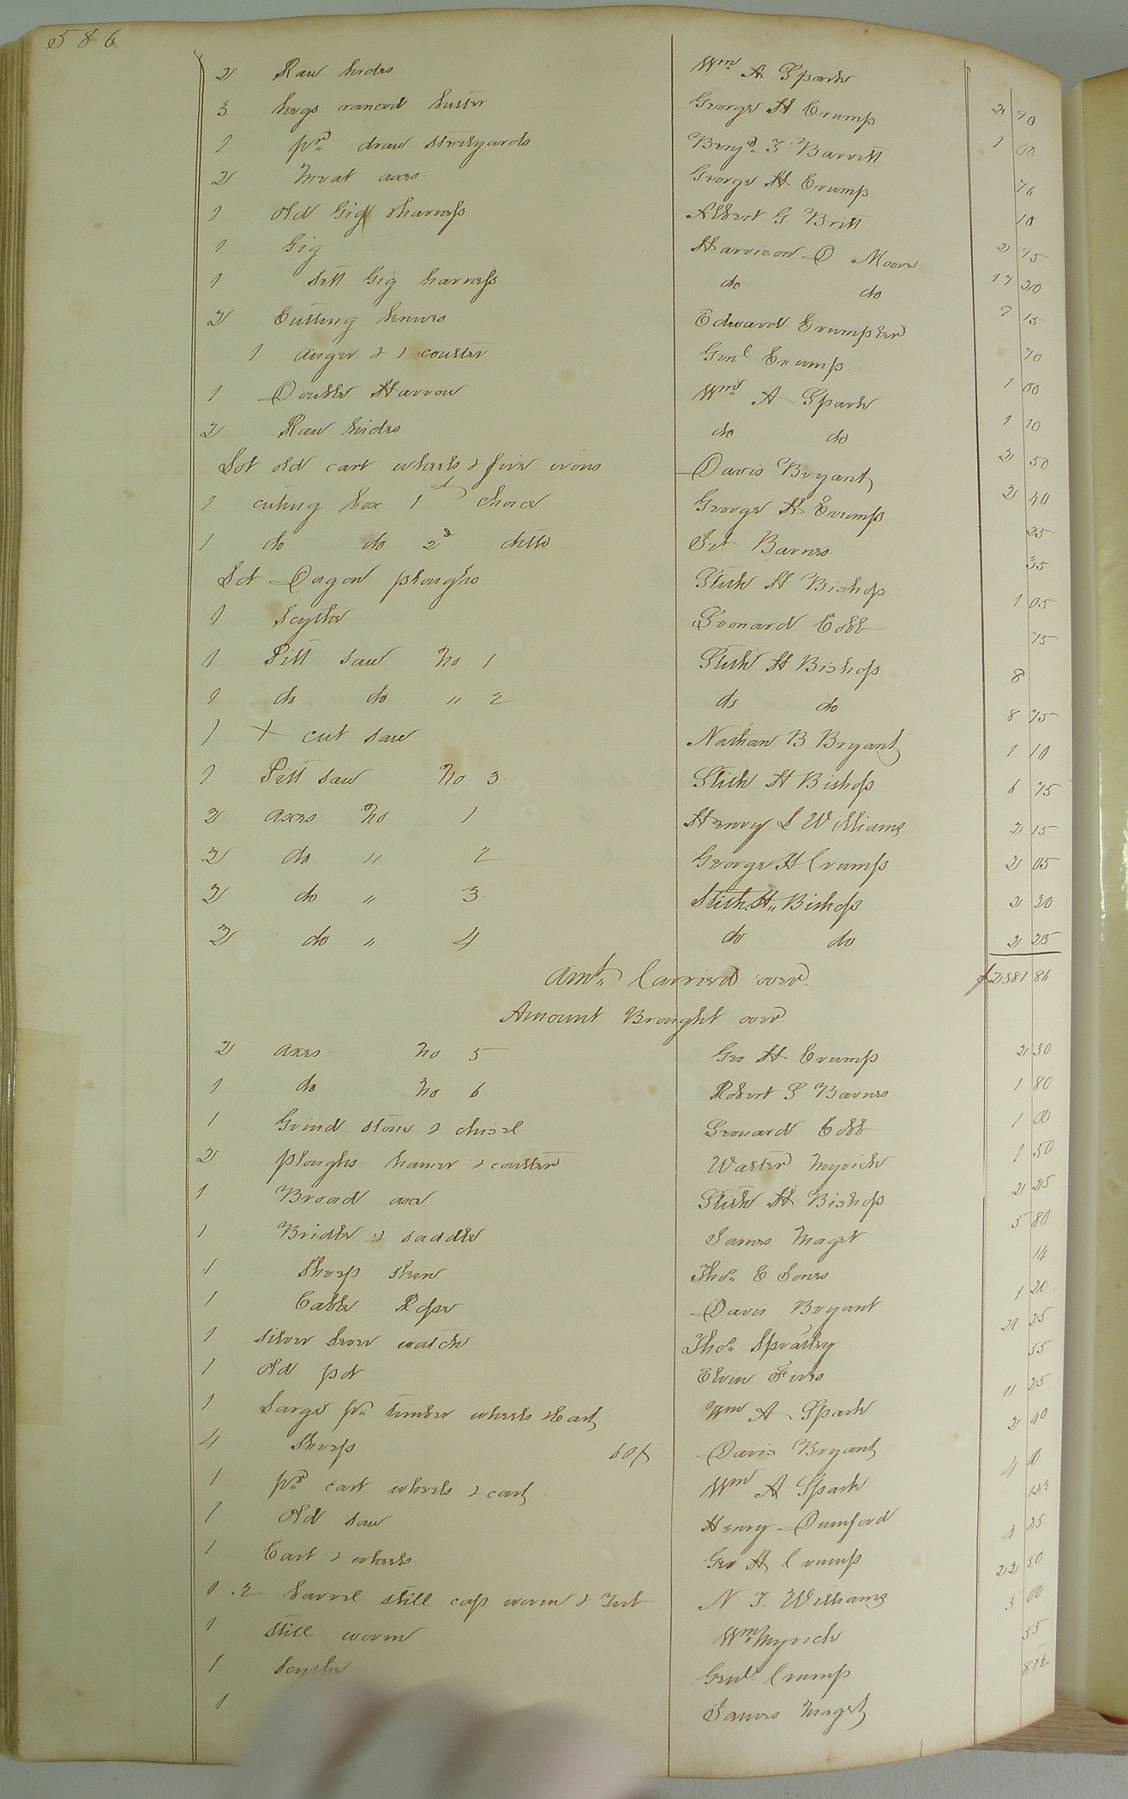 586
2 Raw hides Wm A Spark
3 hogs rancid butter George H Crump 2 70
1 pr draw steelyards Benja T Barrett 1 00
2 Meat axes George H Crump 76
1 old Gig & harness Albert G Britt 10
1 Gig Harrison D Moore 2 75
1 sett Gig harness do do 17 20
2 Cutting knives Edward Crumpler 7 15
1 auger & 1 coulter Genl Crump 70
1 Double Harrow Wm A Spark 1 00
2 Raw hides do do 1 10
Lot old cart wheels & fire irons Davis Bryant 2 50
1 cuting box 1st choice George H Crump 2 40
1 do do 2d ditto Jet Barnes 25
Lot Dagon ploughs Stith H Bishop 35
1 Scythe Leonard Cobb 1 05
1 Pitt saw No 1 Stith H Bishop 75
1 do do " 2 do do 8
1 X cut saw Nathan B Bryant 8 75
1 Pitt saw No 3 Stith H Bishop 1 10
2 axes No 1 Henry L Williams 6 75
2 do " 2 George H Crump 2 15
2 do " 3 Stith H. Bishop 2 05
2 do " 4 do do 2 20
2 25
Amt. Carried over $2581 86
Amount Brought over
2 axes No 5 Geo H Crump 2 30
1 do No 6 Robert S Barnes 1 80
1 Grind stone & chisel Leonard Cobb 1 00
2 ploughs hamer & coulter Walter Myrick 1 50
1 Broad axe Stith H Bishop 2 25
1 Bridle & saddle James Maget 5 80
1 Sheep skin Tho. E Jones 14
1 Cable Rope Davis Bryant 1 20
1 silver lever watch Tho. Spratley 21 25
1 old pot Elvin Fires 55
1 Large pr timber wheels & cart Wm A Spark 11 25
4 Sheep 60/ Davis Bryant 2 40
1 pr cart wheels & cart Wm A Spark 4 00
1 Old saw Henry Dunford 12½
1 Cart & wheels Geo H Crump 4 25
1 .2 barrel still cap worm & Tub N T. Williams 22 50
1 still worm Wm Myrick 3 00
1 Scythe Genl Crump 55
1 James Maget 87½